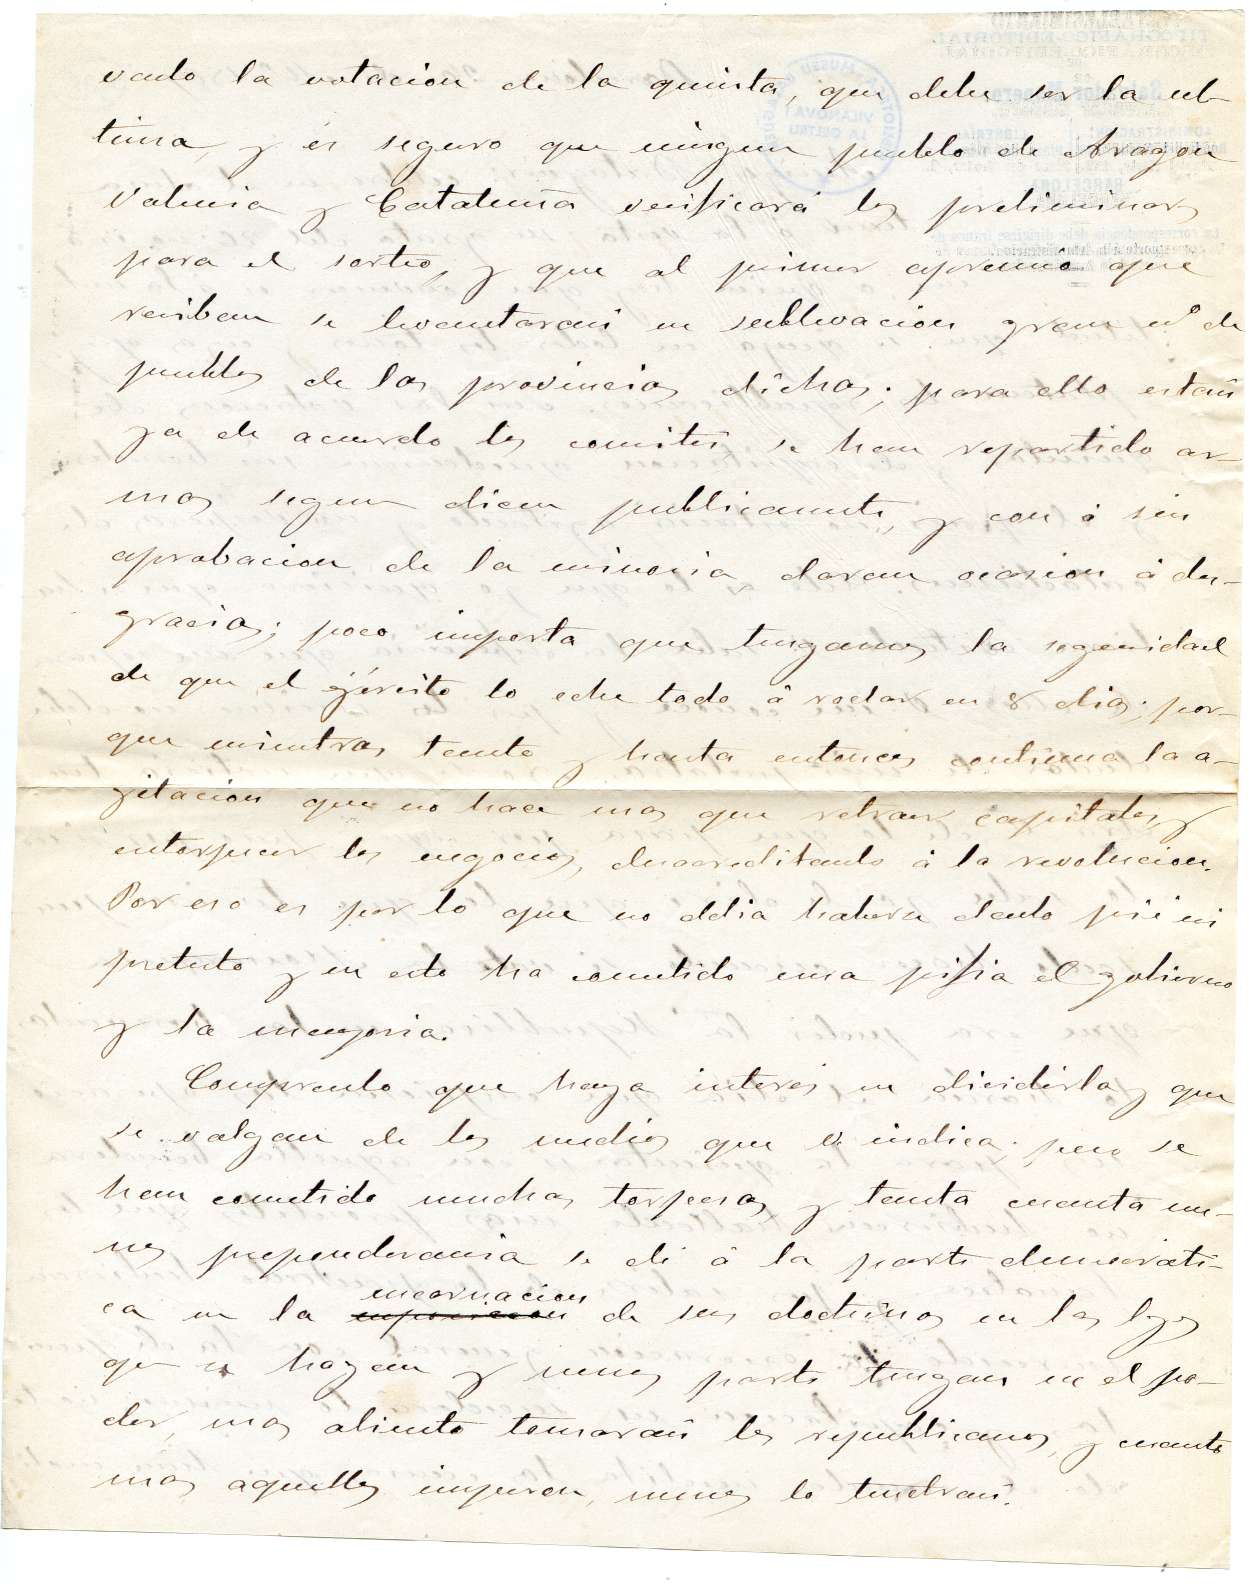 vado la votacion de la quinta, que debe ser la ul-
tima, y es seguro que ningun pueblo de Aragon
Valencia y Cataluña verificará los preliminares
para el sorteo, y que al primer apremio que
reciban se levantarán en sublevacion gran nº de
pueblos de las provincias dichas; para ello están
ya de acuerdo los comités, se han repartido ar-
mas segun dicen publicamente, y con ó sin
aprobacion de la minoria, daran ocasion á des-
gracias; poco importa que tengamos la seguridad
de que el ejército lo eche todo á rodar en 8 dias; por-
que mientras tanto y hasta entonces continua la a-
gitacion que no hace mas que retraer capitales, y
entorpecer los negocios, desacreditando á la revolucion.
Por eso es por lo que no debia haberse dado pié ni
pretesto y en esto ha cometido una pifia el gobierno
y la mayoria.
Comprendo que haya interes en dividirla y que
se valgan de los medios que V. indica; pero se
han cometido muchas torpezas, y tanta cuanta me-
nos preponderancia se dé á la parte democráti-
ca en la encarnacion de sus doctrinas en las leyes
que se hagan y menos parte tengan en el po-
der, mas aliento tomarán los republicanos, y cuanto
mas aquellos imperen, menos lo tendrán.